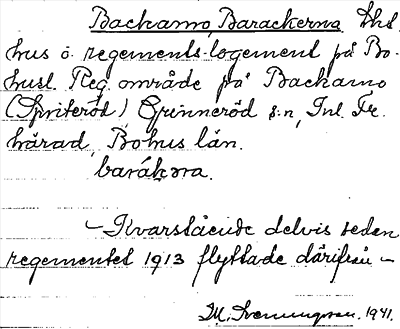 Backamo, Barackerna
hus o. regements-logement på Bo-
husl. Reg. område på Backamo
Grinneröd s:n, Inl. Fr.
härad, Bohus län.
barákɔra.
– Kvarstående delvis sedan
regementet 1913 flyttade därifrån –
M. Svenungsson. 1941.